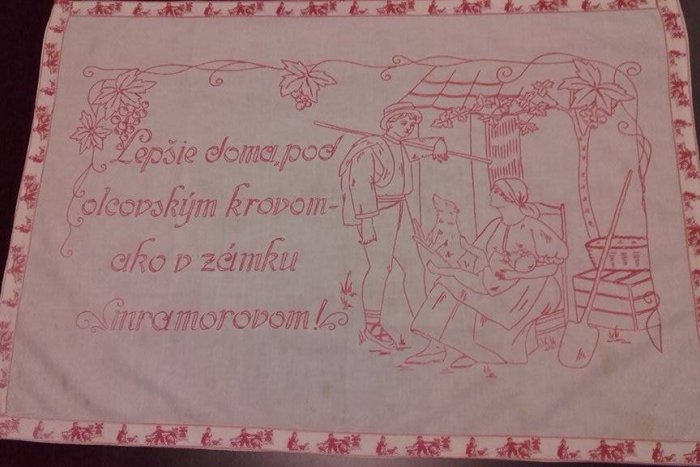 Lepšie doma, pod
olcovským krovom-
ako v zámku
Smramorovom!